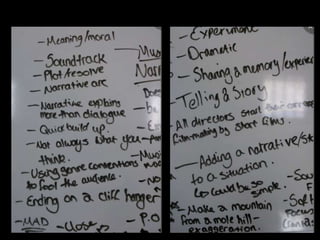 - Meaning/moral
- Soundtrack
- Plot/resolve
- Narrative arc
- Narrative explains
more than dialogue
- Quick build up.
- Not always what you
think.
- Using genre conventions
to fool the audience.
- Ending on a cliff hanger
- MAD
- Experiment
- Dramatic
- Sharing a memory/experien
- Telling a Story
All directors start their
filmmaking by short films.
- Adding a narrative/st
to a situation.
↳ could be so
simple.
- Make a mountain
from a mole hill -
exaggeration.